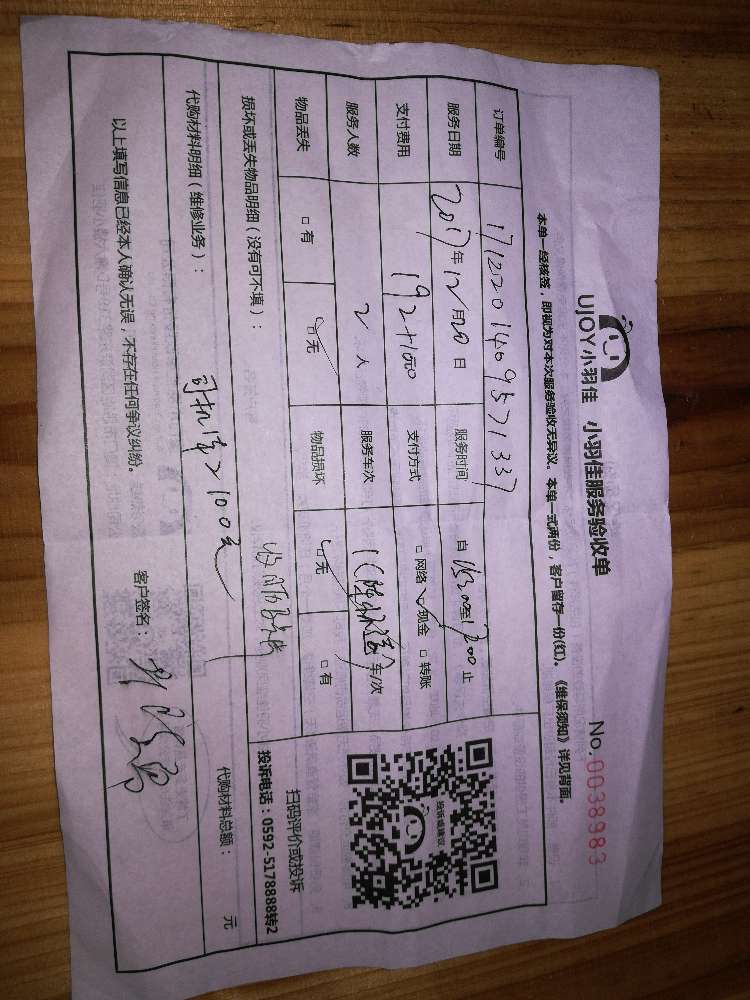 UJOY小羽佳 小羽佳服务验收单 No.0038983
本单一经核签，即视为对本次服务验收无异议。本单一式两份，客户留存一份(红)。《维保须知》详见背面。
订单编号 1712201409571337
服务日期 2017年12月20日 服务时间 自 至 止
支付费用 192+10元 支付方式 □网络 ✓现金 □转账
服务人数 2人 服务车次 车/次
物品丢失 □有 ☑无 物品损坏 ☑无 □有
损坏或丢失物品明细（没有可不填）：
扫码评价或投诉
投诉电话：0592-5178888转2
投诉或建议
代购材料明细（维修业务）： 司机 100元 代购材料总额： 元
以上填写信息已经本人确认无误，不存在任何争议纠纷。 客户签名：